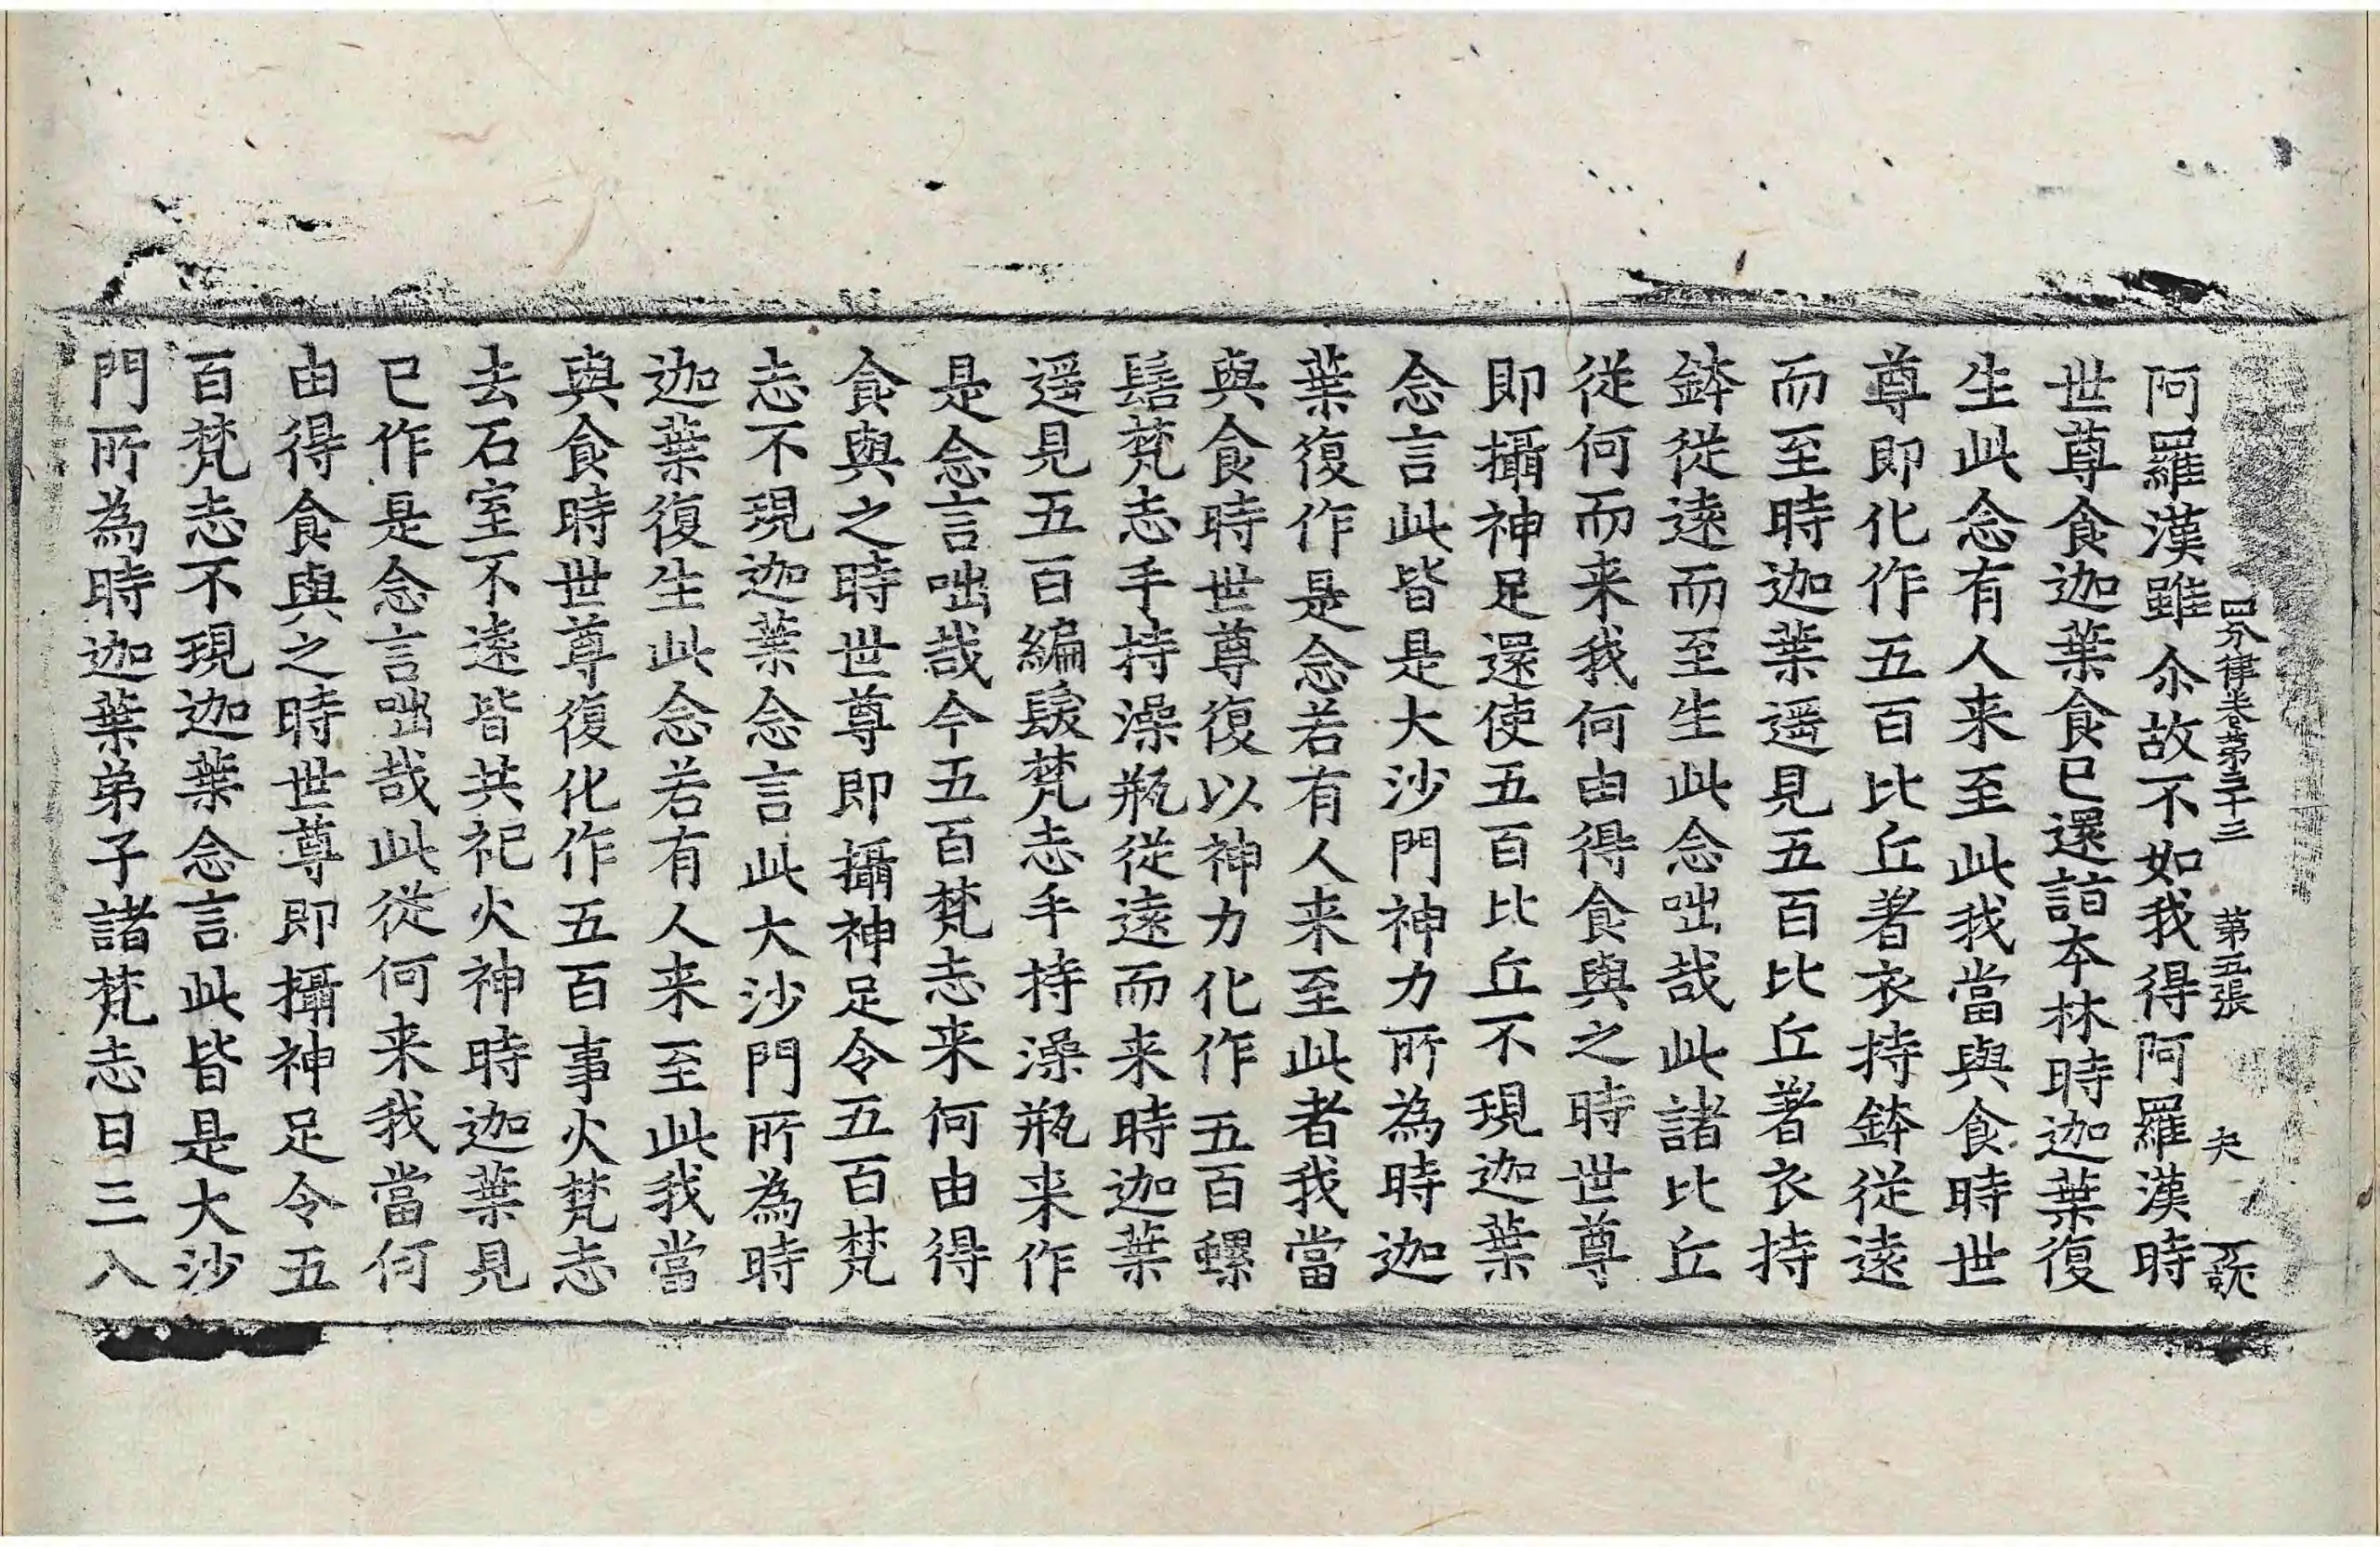 四分律卷第三十三 第五張
阿羅漢雖尒故不如我得阿羅漢時
世尊食迦葉食已還詣本林時迦葉復
生此念有人来至此我當與食時世
尊即化作五百比丘著衣持鉢從遠
而至時迦葉遥見五百比丘著衣持
鉢從遠而至生此念咄哉此諸比丘
從何而来我何由得食與之時世尊
即攝神足還使五百比丘不現迦葉
念言此皆是大沙門神力所為時迦
葉復作是念若有人来至此者我當
與食時世尊復以神力化作五百螺
髻梵志手持澡瓶從遠而来時迦葉
遥見五百編髮梵志手持澡瓶来作
是念言咄哉今五百梵志来何由得
食與之時世尊即攝神足令五百梵
志不現迦葉念言此大沙門所為時
迦葉復生此念若有人来至此我當
與食時世尊復化作五百事火梵志
去石室不遠皆共祀火神時迦葉見
已作是念言咄哉此從何来我當何
由得食與之時世尊即攝神足令五
百梵志不現迦葉念言此皆是大沙
門所為時迦葉弟子諸梵志日三入